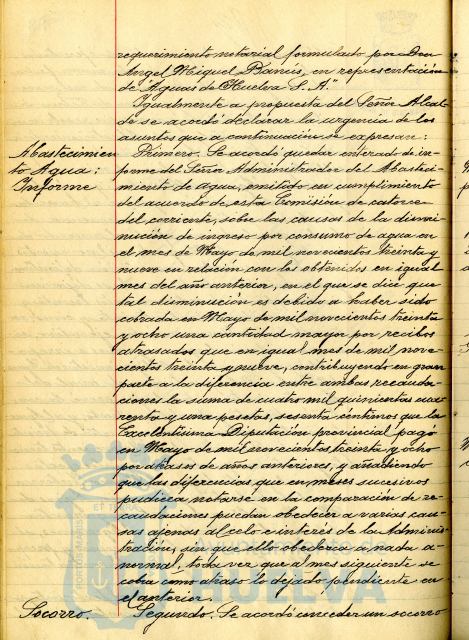 requerimiento notarial formulado por Don
Angel Miguel Bancés, en representación
de "Aguas de Huelva S. A."
Igualmente a propuesta del Señor Alcal-
de se acordó declarar la urgencia de los
asuntos que a continuación se expresan:
Abastecimien
to Agua:
Informe
Primero. Se acordó quedar enterado de in-
forme del Señor Administrador del Abasteci-
miento de agua, emitido en cumplimiento
del acuerdo de esta Comisión de catorce
del corriente, sobre las causas de la dismi-
nución de ingreso por consumo de agua en
el mes de Mayo de mil novecientos treinta y
nueve en relación con los obtenidos en igual
mes del año anterior, en el que se dice que
tal disminución es debida a haber sido
cobrada en Mayo de mil novecientos treinta
y ocho una cantidad mayor por recibos
atrasados que en igual mes de mil nove-
cientos treinta y nueve, contribuyendo en gran
parte a la diferencia entre ambas recauda-
ciones la suma de cuatro mil quinientas cua
renta y una pesetas, sesenta céntimos que la
Excelentísima Diputación provincial pagó
en Mayo de mil novecientos treinta y ocho
por atrasos de años anteriores, y añadiendo
que las diferencias que en meses sucesivos
pudiera notarse en la comparación de re-
caudaciones puedan obedecer a varias cau-
sas ajenas al celo e interés de la Adminis-
tración, sin que ello obedezca a nada a-
normal, toda vez que al mes siguiente se
cobra como atraso lo dejado pendiente en
el anterior.
Socorro.
Segundo. Se acordó conceder un socorro
HUELVA